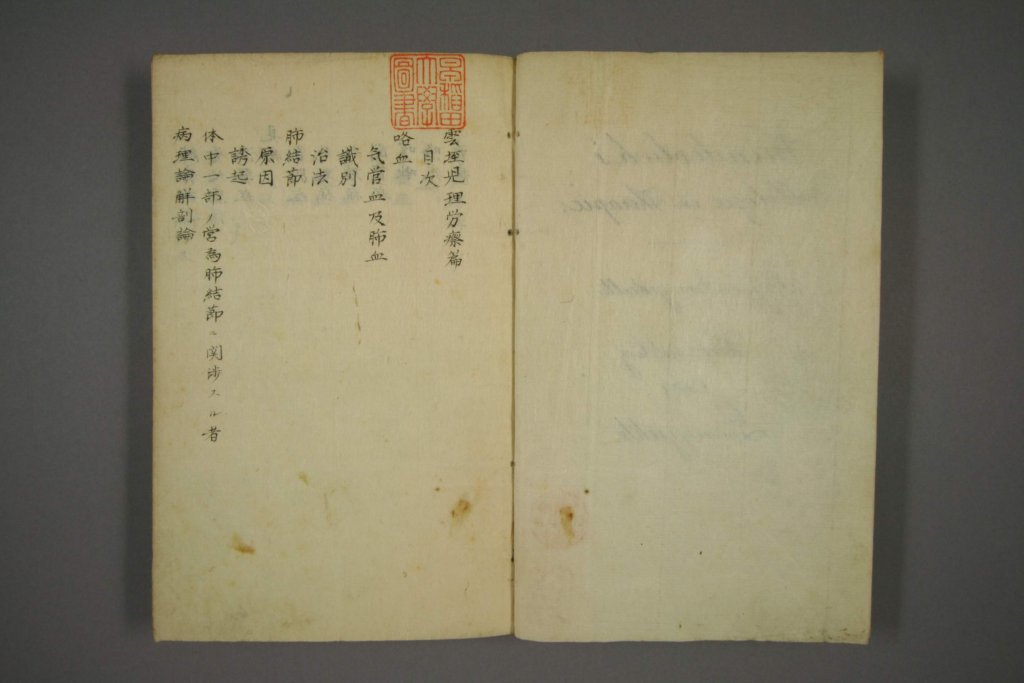 早稲田
大學
圖書
雲埋児理労瘵篇
目次
咯血
気管血及肺血
識別
治法
肺結節
原因
誘起
体中一部ノ営為肺結節ニ関渉スル者
病理論解剖論